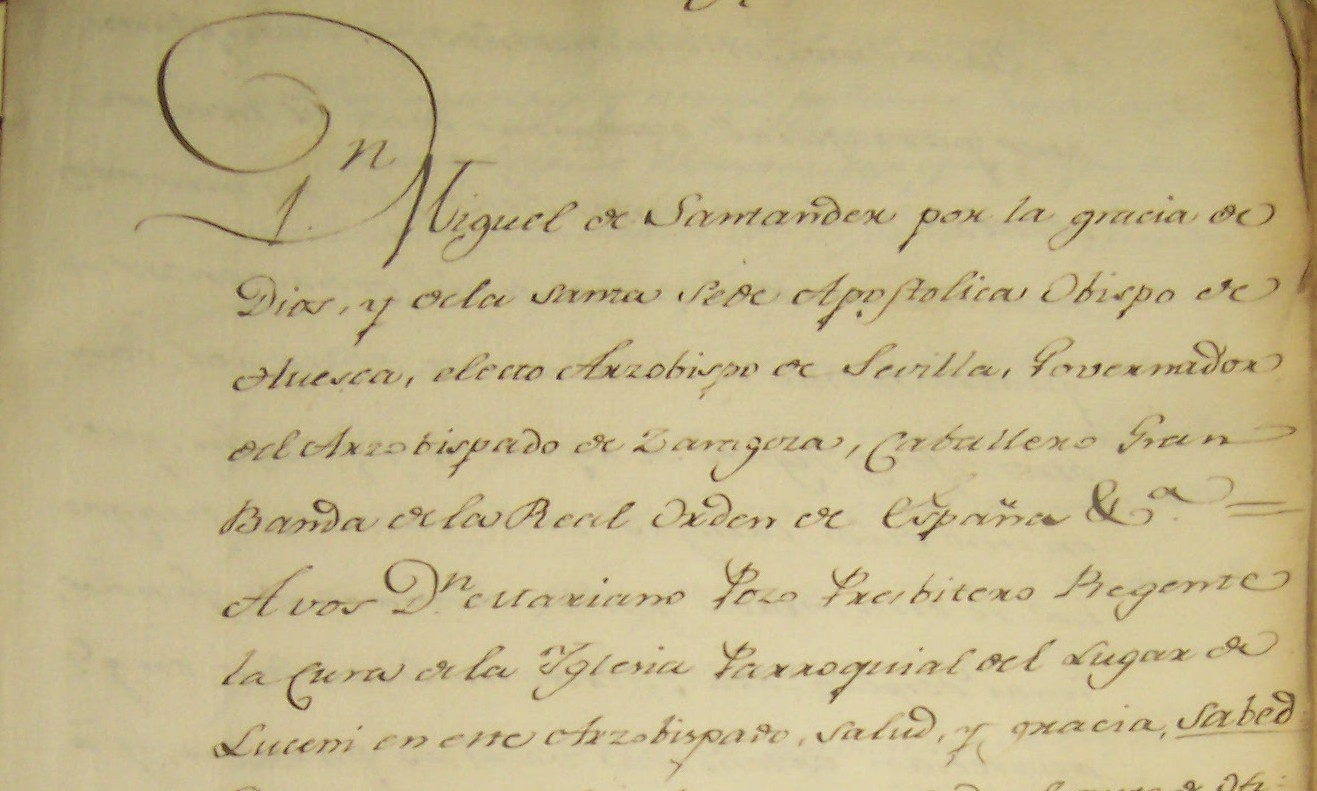 Dn. Miguel de Santander por la gracia de
Dios, y de la santa Sede Apostolica Obispo de
Huesca, electo Arzobispo de Sevilla, Governador
del Arzobispado de Zaragoza, Caballero Gran
Banda de la Real Orden de España &a. =
A vos Dn. Mariano Pozo Presbitero Regente
la Cura de la Yglesia Parroquial del Lugar de
Luceni en este Arzobispado, salud, y gracia, sabed